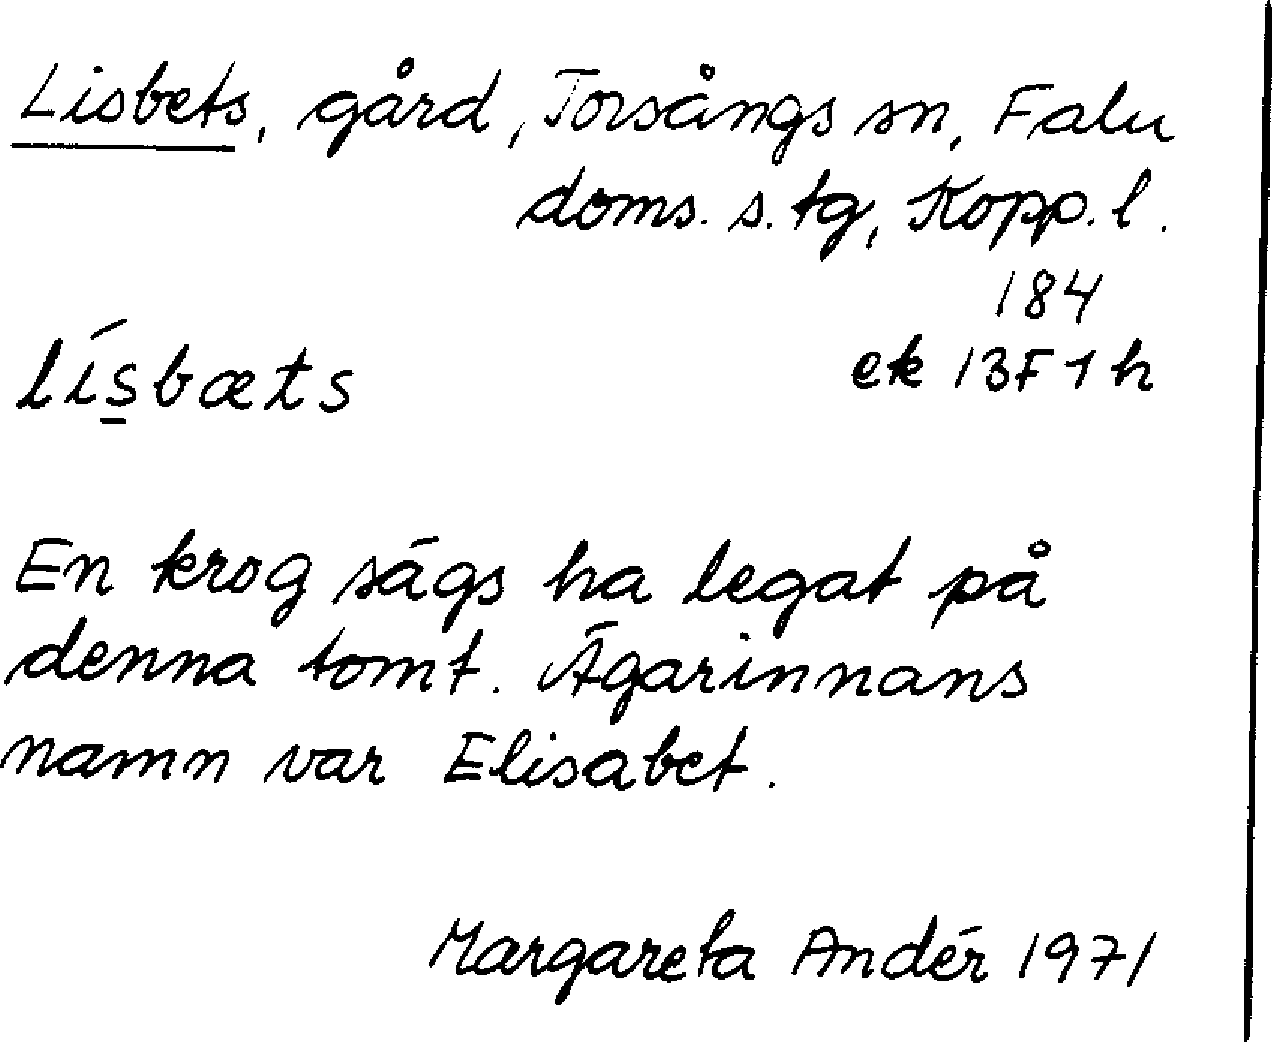 Lisbets, gård, Torsångs sn, Falu
doms. s. tg, Kopp. l.
184
lísbæts
ek 13F 1h
En krog sägs ha legat på
denna tomt. Ägarinnans
namn var Elisabet.
Margareta Andér 1971